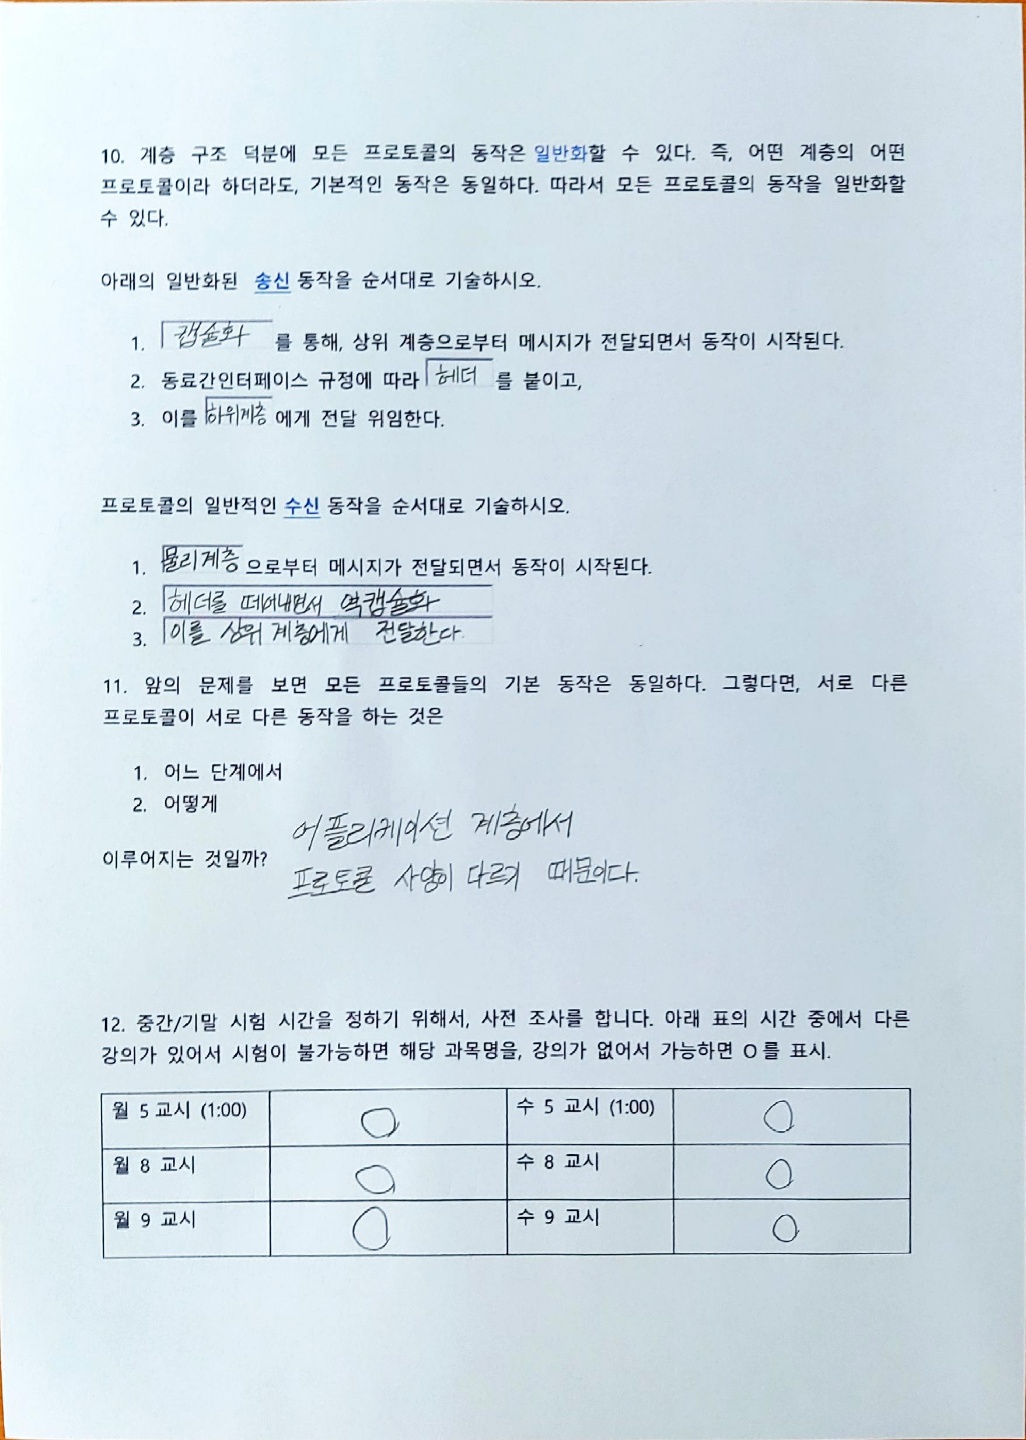 10. 계층 구조 덕분에 모든 프로토콜의 동작은 일반화할 수 있다. 즉, 어떤 계층의 어떤
프로토콜이라 하더라도, 기본적인 동작은 동일하다. 따라서 모든 프로토콜의 동작을 일반화할
수 있다.
아래의 일반화된 송신 동작을 순서대로 기술하시오.
1. 캡슐화 를 통해, 상위 계층으로부터 메시지가 전달되면서 동작이 시작된다.
2. 동료간인터페이스 규정에 따라 헤더 를 붙이고,
3. 이를 하위계층 에게 전달 위임한다.
프로토콜의 일반적인 수신 동작을 순서대로 기술하시오.
1. 물리계층 으로부터 메시지가 전달되면서 동작이 시작된다.
2. 헤더를 떼어내면서 역캡슐화
3. 이를 상위 계층에게 전달한다.
11. 앞의 문제를 보면 모든 프로토콜들의 기본 동작은 동일하다. 그렇다면, 서로 다른
프로토콜이 서로 다른 동작을 하는 것은
1. 어느 단계에서
2. 어떻게
이루어지는 것일까?
어플리케이션 계층에서
프로토콜 사양이 다르기 때문이다.
12. 중간/기말 시험 시간을 정하기 위해서, 사전 조사를 합니다. 아래 표의 시간 중에서 다른
강의가 있어서 시험이 불가능하면 해당 과목명을, 강의가 없어서 가능하면 O를 표시.
월 5교시 (1:00) O 수 5 교시 (1:00) O
월 8 교시 O 수 8 교시 O
월 9 교시 O 수 9 교시 O